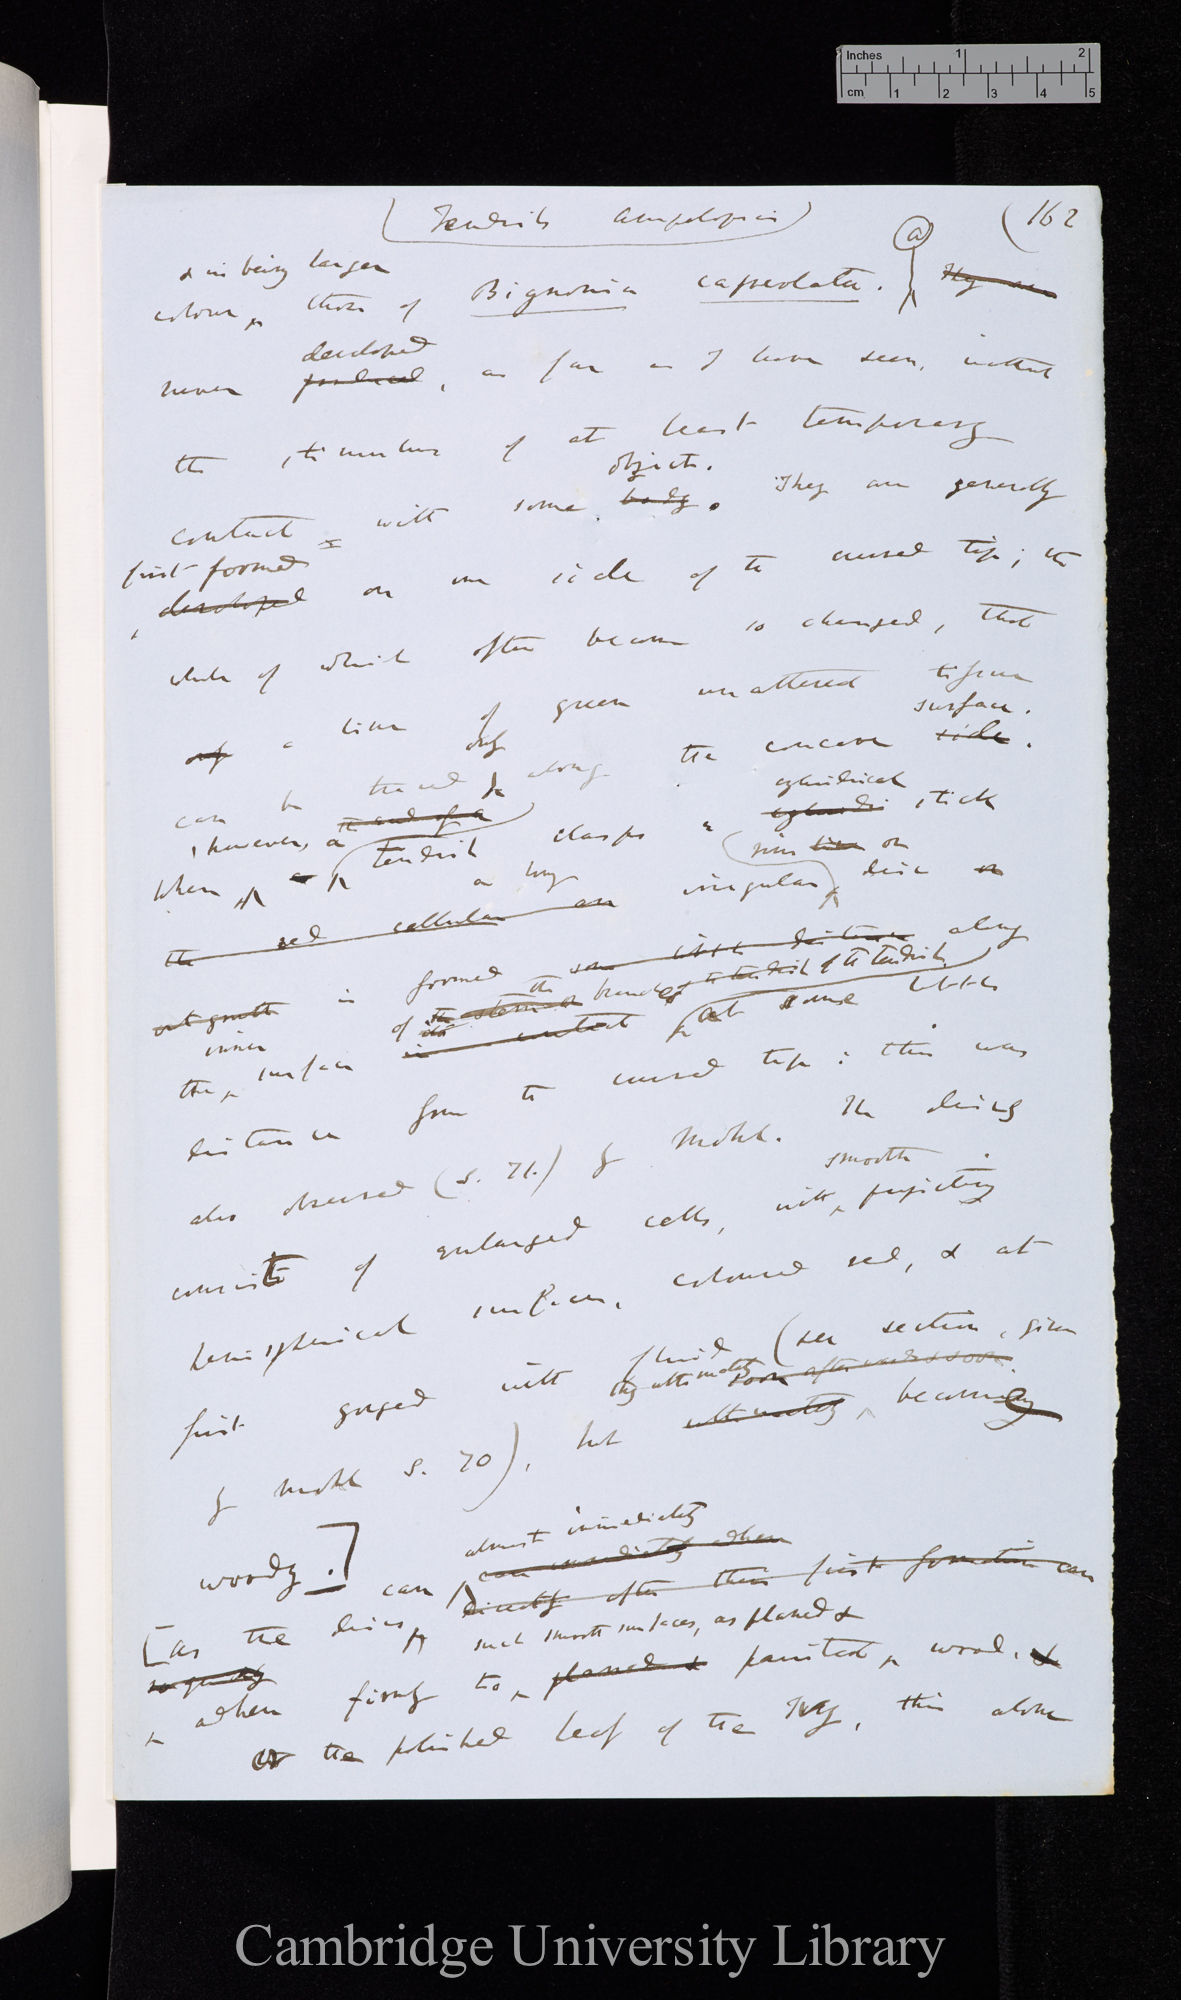 Inches 1 2
cm 1 2 3 4 5
(Tendrils Ampelopsis) (162
& in being larger
colour, those of Bignonia capreolata. (a) They are
never developed produced, as far as I have seen, without
the stimulus of at least temporary
contact with some object. body. They are generally
first formed developed on one side of the curved tip; the
whole of which often become so changed, that
a line of green unaltered tissue surface.
can be traced only along the concave side.
When, however, a tendril clasps a cylindrical stick
the red cellular an irregular rim or disc
outgrowth is formed some little distance along
the inner surface of the branches of the tendril at some little
in contact
distance from the curved tip: this was
also observed (s. 71.) by Mohl. The discs
consist of enlarged cells, with smooth projecting
hemispherical surfaces, coloured red, & at
first gorged with fluid (see section, given
by Mohl s. 70), but they ultimately ultimately becoming
woody.]
almost immediately
[As the discs can directly after their first formation can
such smooth surfaces, as planed &
adhere firmly to planed & painted wood, &
or the polished leaf of the Ivy, this alone
Cambridge University Library